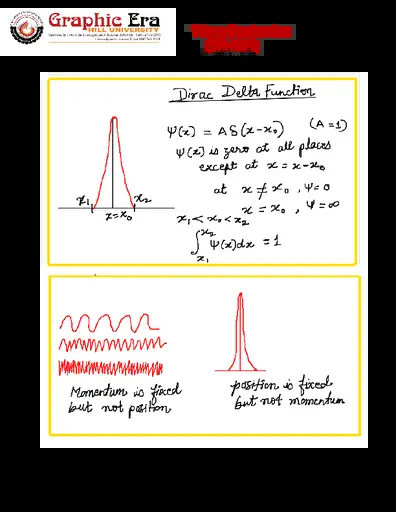 Graphic Era
HILL UNIVERSITY
Dirac Delta Function
ψ(x) = A δ(x-x₀) (A=1)
ψ(x) is zero at all places
except at x = x-x₀
at x ≠ x₀, ψ=0
x = x₀, ψ=∞
x₁ < x₀ < x₂
∫x₁x₂ ψ(x)dx = 1
x₁ x=x₀ x₂
Momentum is fixed
but not position
position is fixed
but not momentum